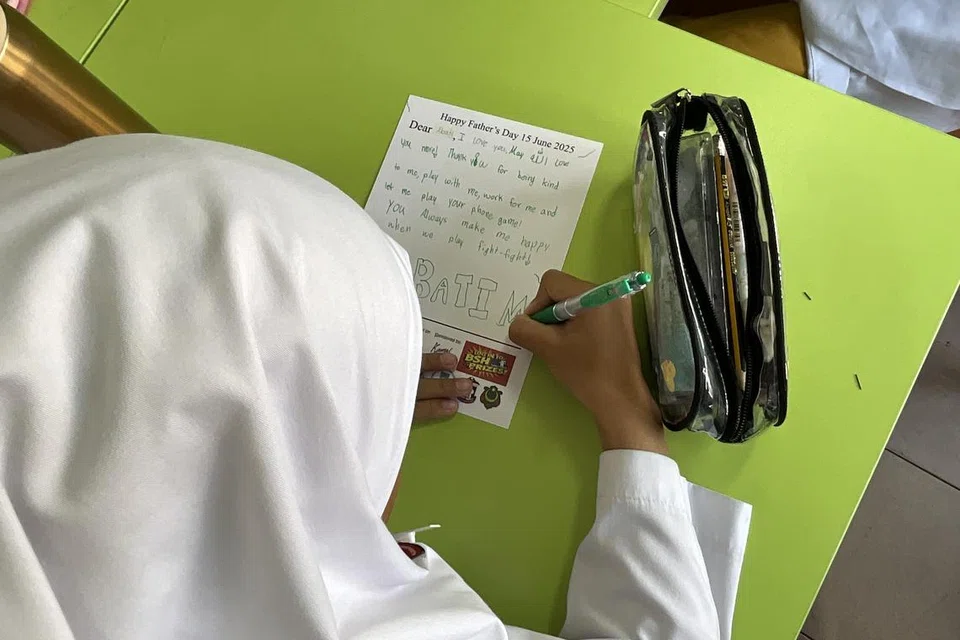 Happy Father's Day 15 June 2025
Dear I love you, May الله Love
you more! Thank you for being kind
to me, play with me, work for me and
let me play your phone game!
You Always make me happy
when we play fight-fight!
BATI M
Sponsored by:
Kamal
BSH
PRIZES